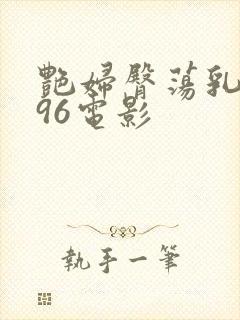 艷婦臀蕩乳
96電影
執手一筆